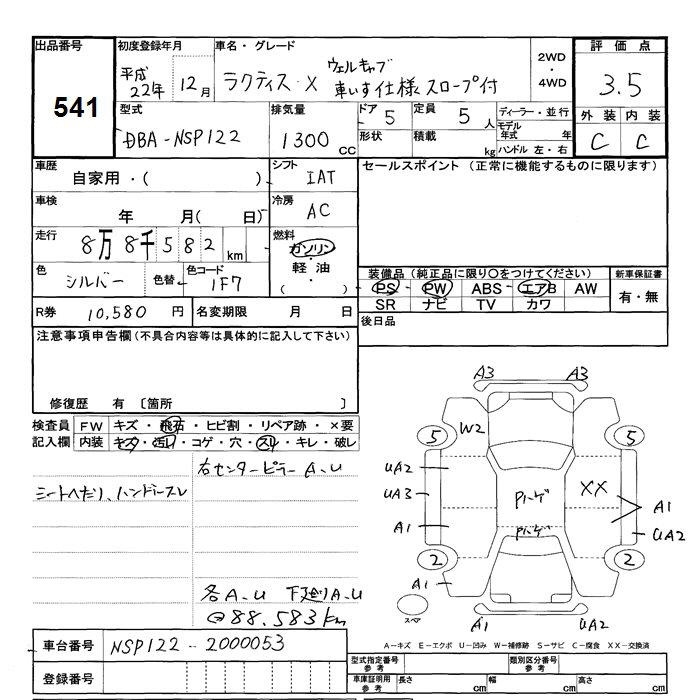 出品番号 初度登録年月 車名・グレード 評価点
541
平成22年 12月 ラクティス X ウェルキャブ 車いす仕様 スロープ付 2WD・4WD 3.5
型式 排気量 ドア 5 定員 5人 ディーラー・並行 外装 内装
DBA-NSP122 1300cc 形状 積載 kg モデル年式 年 ハンドル 左・右 C C
車歴 自家用・( ) シフト IAT セールスポイント (正常に機能するものに限ります)
車検 年 月( 日) 冷房 AC
走行 8万8千582km 燃料 ガソリン・軽油 ( )
色 シルバー 色替 色コード 1F7
装備品(純正品に限り○をつけてください) 新車保証書
PS PW ABS エアB AW 有・無
SR ナビ TV カワ
R券 10,580円 名変期限 月 日 後日品
注意事項申告欄(不具合内容等は具体的に記入して下さい)
修復歴 有 〔箇所 〕
検査員 FW キズ・飛石・ヒビ割・リペア跡・×要
記入欄 内装 キズ・汚れ・コゲ・穴・スリ・キレ・破レ
右センターピラー A.U
シートヘたり、ハンドルスレ
各A.U 下廻りA.U
@88.583km
A3 A3
5 W2 5
UA2
UA3 パハーゲ XX A1
A1 パハーゲ UA2
2 2
A1
スペア A1 UA2
A-キズ E-エクボ U-凹み W-補修跡 S-サビ C-腐食 XX-交換済
車台番号 NSP122-2000053
型式指定番号 参考 類別区分番号 参考
登録番号
車庫証明用 参考 長さ cm 幅 cm 高さ cm